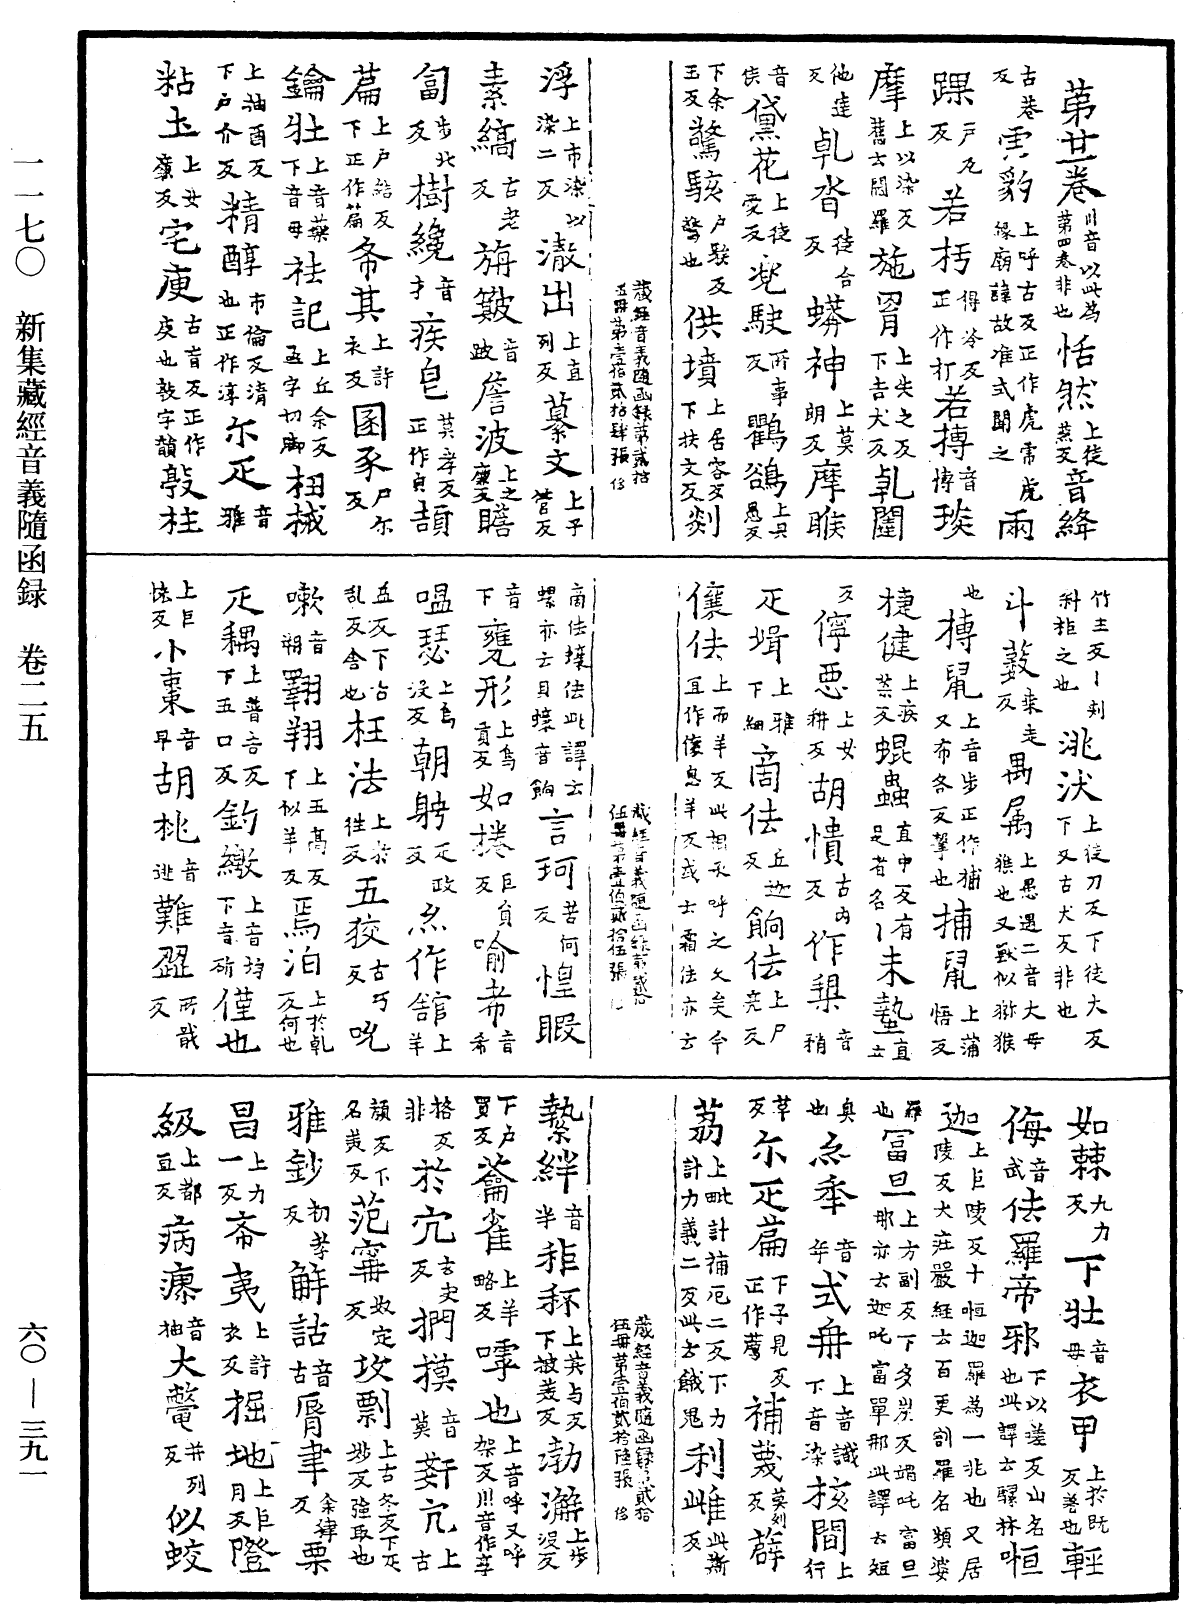 一一七〇　新集藏經音義隨函録　卷二五
六〇—三九一
第廿卷川音以此為第四卷非也恬然上徒燕反音絳
古巷反雲豹上呼古反正作虎常虎緣廟諱故准式闕之兩
踝戶瓦反若杇得冷反正作打若搏音博琰
摩上以染反舊云閻羅施罥上失之反下吉犬反乹闥
他達反乹沓徒合反蟒神上莫朗反摩睺
音侯黛花上徒愛反兇駛所事反鸜鵒上具愚反
下余玉反驚駭戶駭反驚也供墳上居容反下扶文反剡
藏經音義隨函録第貳拾伍冊第壹佰貳拾肆張
浮上市染以染二反澈出上直列反纂文上子管反
素縞古老反旃簸音跛詹波上之廉反瞎
匐步北反樹纔音才疾皂莫孝反正作皃頡
篇上戶結反下正作篇斎其上許衣反圂豕尸尒反
鑰牡上音藥下音母祛記上丘余反五字切腳杻械
上油酉反下戶介反精醇市倫反清也正作淳尒疋音雅
粘土上女廉反宅庾古盲反正作庚也敦字韻敦柱
竹主反丨刺科柜之也洮汱上徒刀反下徒大反下又古犬反非也
斗藪桒走反禺属上愚遇二音大母猴也又獸似獼猴
也搏鼠上音步正作捕又布各反擊也捕鼠上蒲悟反
揵健上疾葉反蜫蟲直中反有足者名丨未蟄直立
反儜悪上女耕反胡憒古內反作槊音稍
疋緝上雅下細商佉丘迦反餉佉上尸亮反
儴佉上而羊反此相承呼之久矣今宜作儴息羊反或云霜佉亦云
藏經音義隨函録第貳拾伍冊第壹佰貳拾伍張
商佉攘佉此譯云螺亦云貝蠰音餉言珂苦何反惶暇
音下甕形上烏貢反如捲巨負反喻希音希
嗢瑟上烏沒反朝躬疋政反亦作館上羊
益反下古乱反舍也枉法上於往反五狡古巧反吮
嗽音朔翺翔上五高反下似羊反焉泊上於乹反何也
疋耦上普吉反下五口反釣繳上音灼下音斫僅也
上巨恡反小棗音早胡桃音逃難澀所戢反
如棘九力反下牡音母衣甲上於既反著也輕
侮音武佉羅帝邪下以嗟反山名也此譯云騾林恒
迦上巨陵反十恒迦羅為一兆也又居陵反大莊嚴經云百更割羅名頻婆
羅也冨旦上方副反下多炭反竭吒冨旦那亦云迦吒富單那此譯云短
臭也亦秊音年式毋上音識下音染核間上行
革反尒疋扁下子見反正作薦補蔑莫列反薜
荔上毗計補戹二反下力計力義二反此云餓鬼利雌此斯反
藏經音義隨函録第貳拾伍冊第壹佰貳拾陸張
縶絆音半秬秠上其与反下披美反勃澥上步沒反
下戶買反蘥雀上羊略反嘑也上音呼又呼架反川音作孛
非格反於宂古穴反捫摸音莫姧宂上古
顏反下名美反范甯奴定反坎剽上古冬反下疋妙反強取也
雅鈔初孝反解詁音古脣聿余律反栗
昌上力一反斎夷上許衣反掘地上巨月反隥
級上都亘反病瘳音抽大鼈并列反似蛟